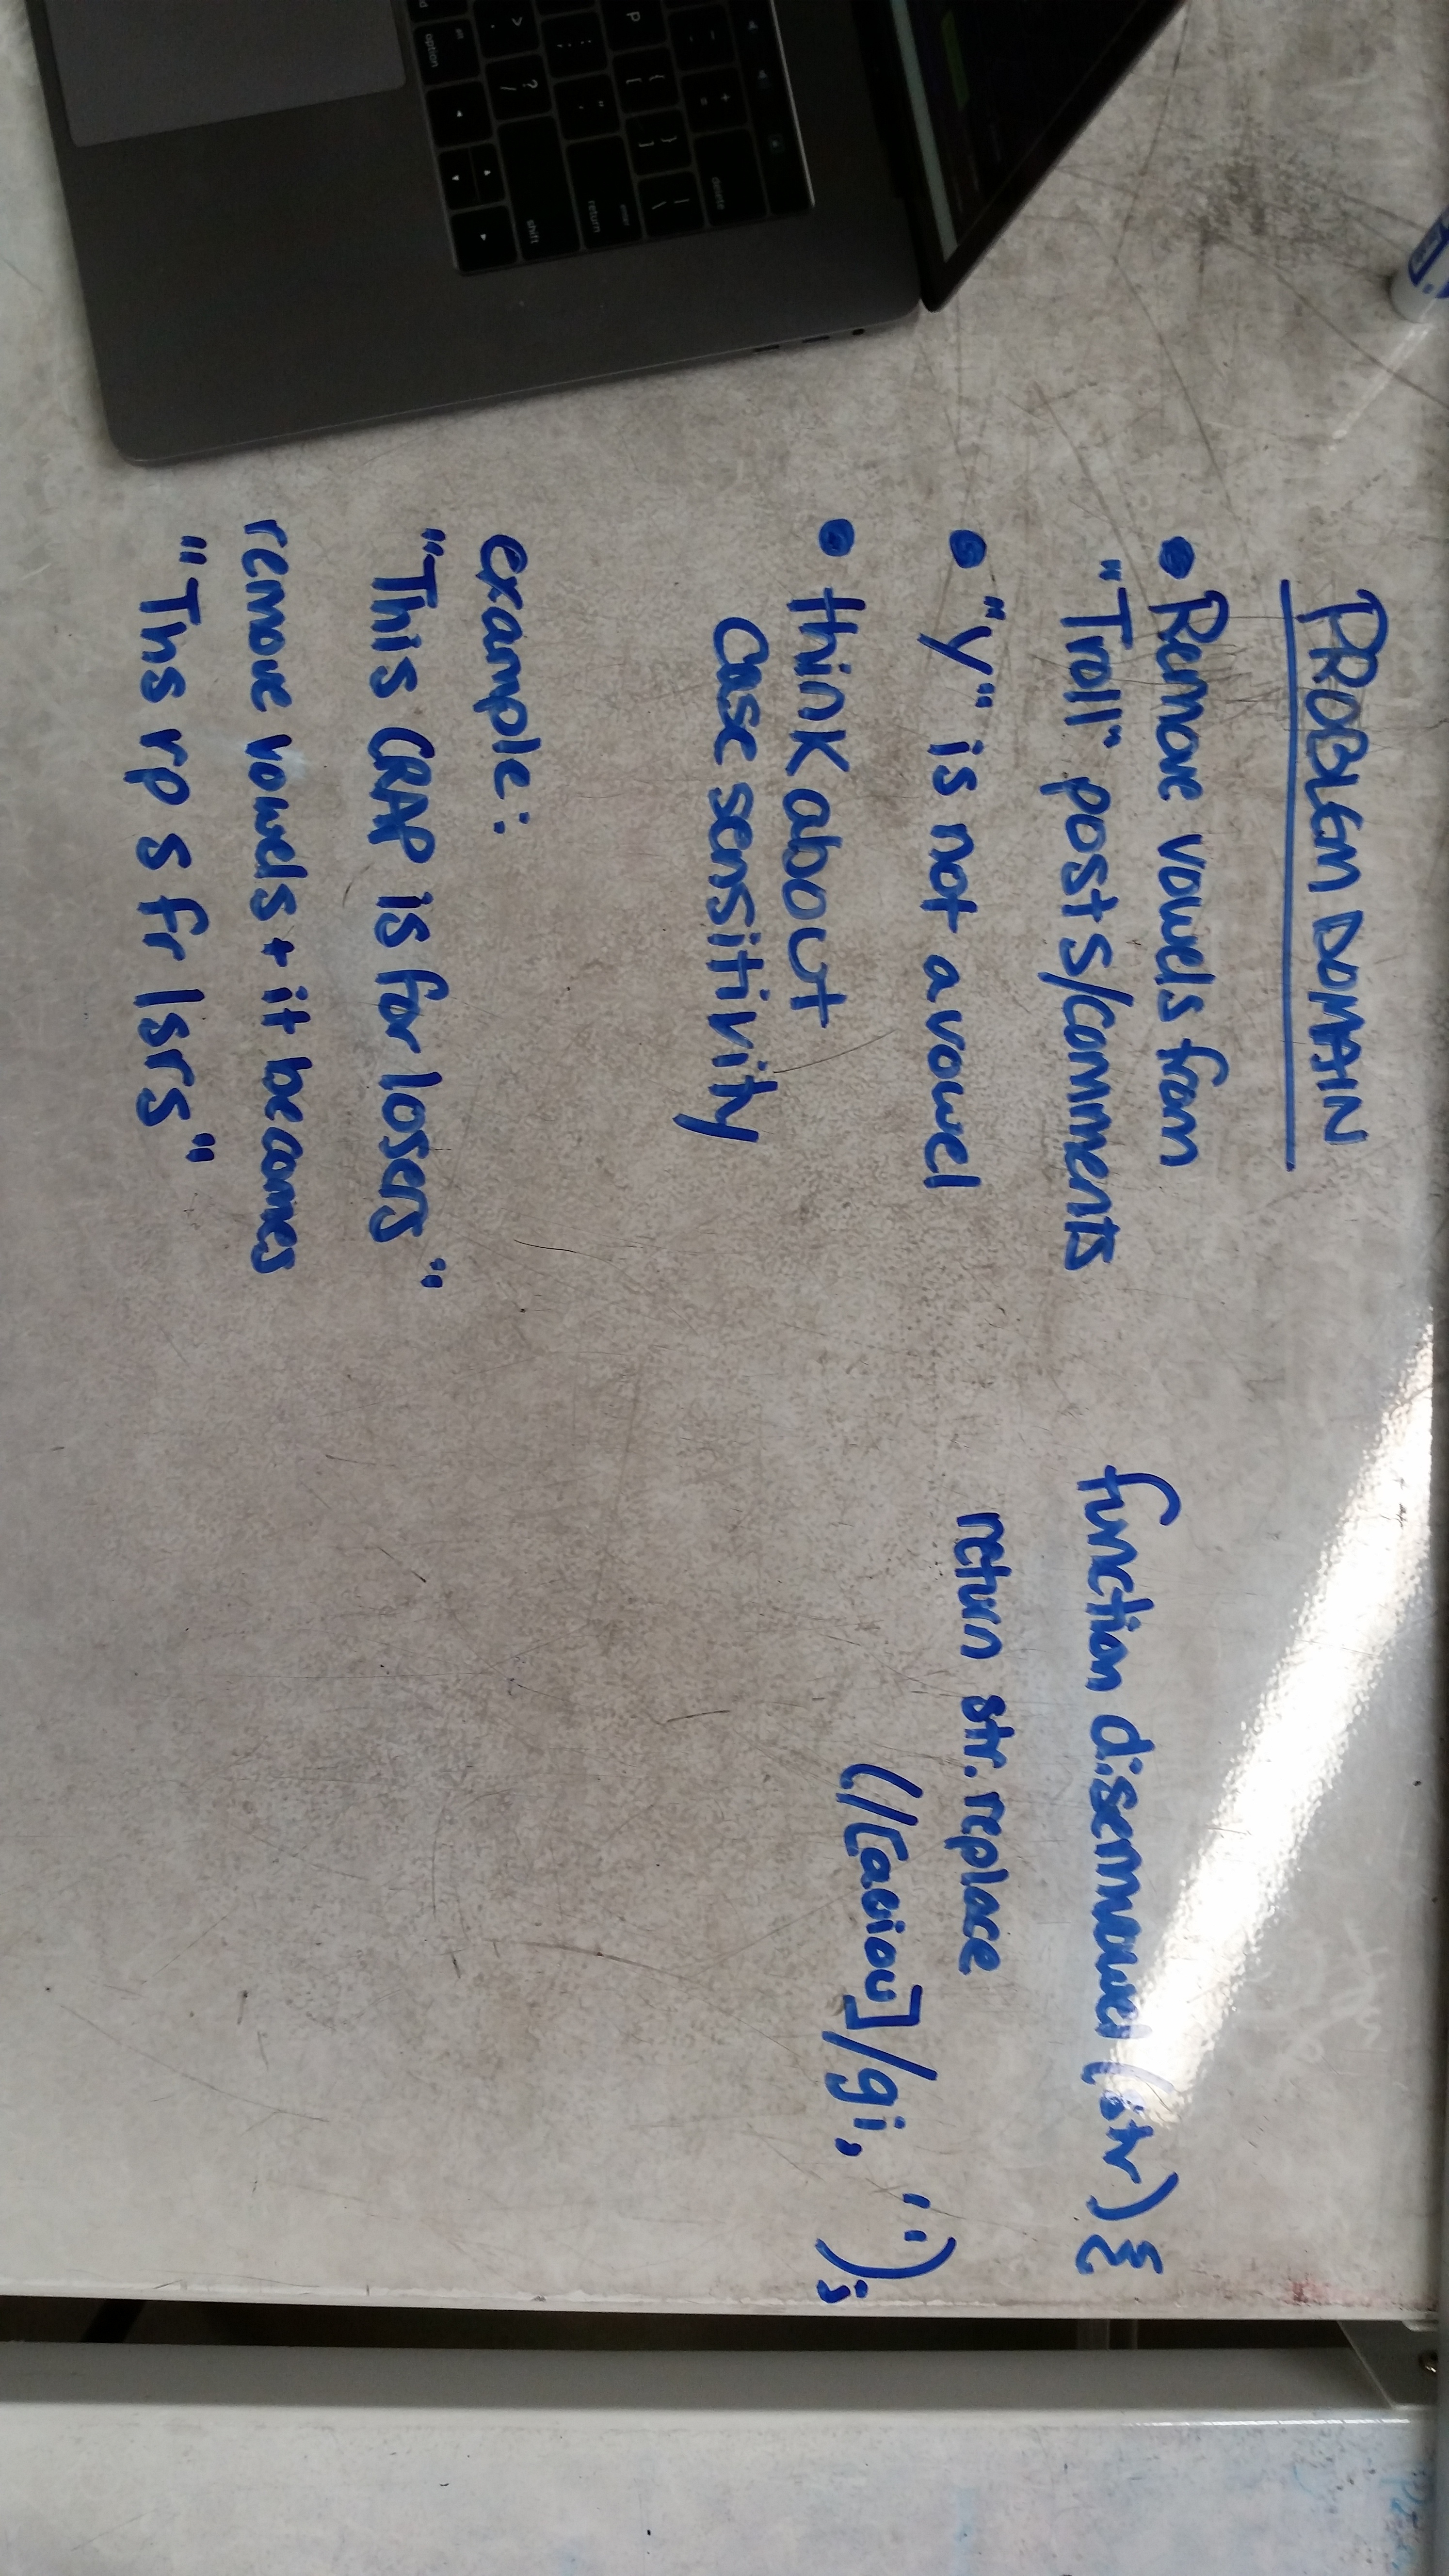 PROBLEM DOMAIN
• Remove vowels from
"Troll" posts/comments
• "y" is not a vowel
• think about
case sensitivity
example:
"This CRAP is for losers"
remove vowels + it becomes
"Ths rp s fr lsrs"
function disemvowel (str) {
return str.replace
(/[aeiou]/gi, '');
option
shift
enter
return
delete